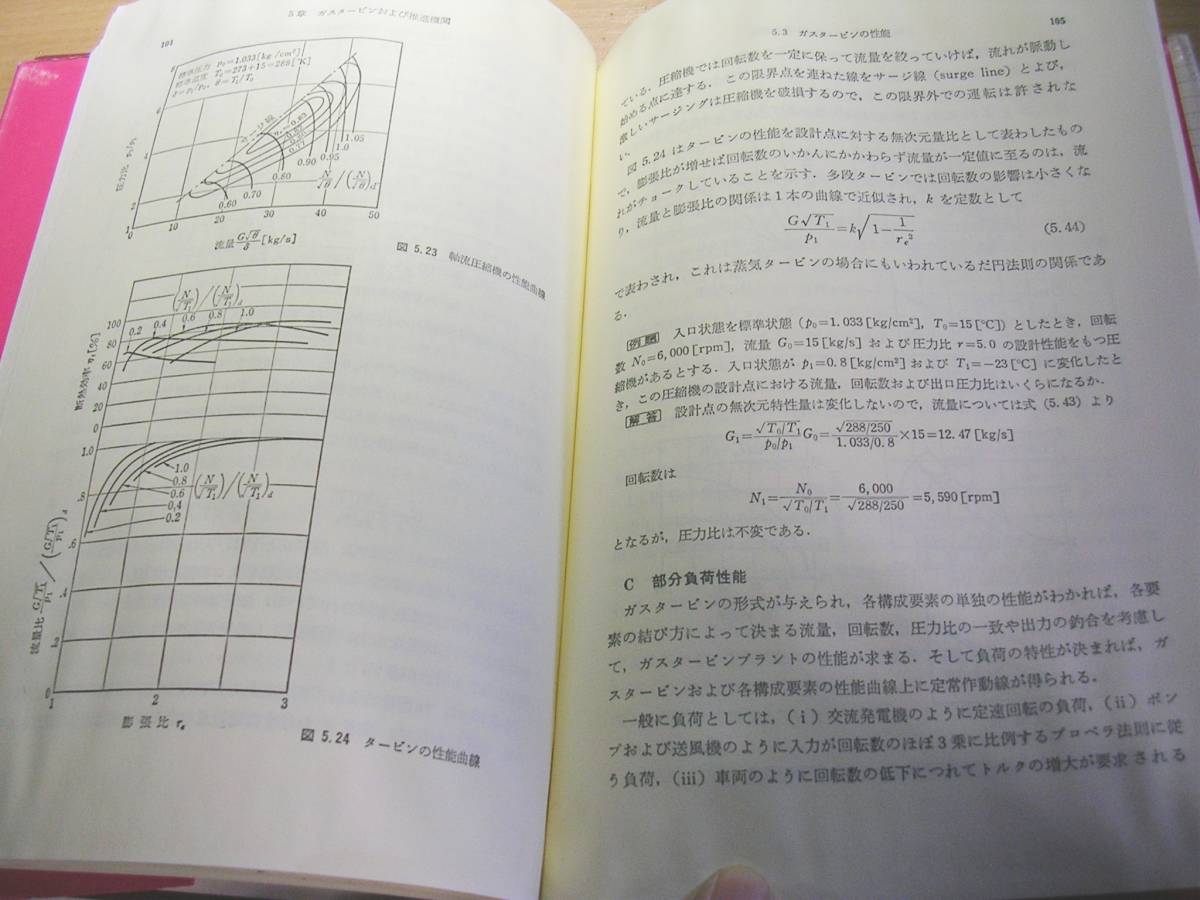 5章 ガスタービンおよび推進機関
標準圧力 p₀=1.033[kg/cm²]
標準温度 T₀=273+15=288[°K]
δ=p₁/p₀, θ=T₁/T₀
サージ線
0.83
0.77
1.05
1.0
0.95
0.90
0.80
0.70
0.60
N/√θ/(N/√θ)d
圧力比
1 10 20 30 40 50
流量 G√θ/δ [kg/s]
図 5.23 軸流圧縮機の性能曲線
(N/√T₁)/(N/√T₁)d
0.2 0.4 0.6 0.8 1.0
断熱効率 ηt[%]
100
80
60
40
20
0
1.0
.8
.6
.4
.2
0
1.0
0.8
0.6
0.4
0.2
(N/√T₁)/(N/√T₁)d
流量比 G√T₁/p₁/(G√T₁/p₁)d
1 2 3
膨張比 re
図 5.24 タービンの性能曲線
5.3 ガスタービンの性能 105
圧縮機では回転数を一定に保って流量を絞っていけば，流れが脈動し
始める点に達する．この限界点を連ねた線をサージ線（surge line）とよび，
激しいサージングは圧縮機を破損するので，この限界外での運転は許されな
い．
図 5.24 はタービンの性能を設計点に対する無次元量比として表わしたもの
で，膨張比が増せば回転数のいかんにかかわらず流量が一定値に至るのは，流
れがチョークしていることを示す．多段タービンでは回転数の影響は小さくな
り，流量と膨張比の関係は1本の曲線で近似され，k を定数として
G√T₁/p₁=k√(1−1/re²) (5.44)
で表わされ，これは蒸気タービンの場合にもいわれているだ円法則の関係であ
る．
[例題] 入口状態を標準状態（p₀=1.033[kg/cm²]，T₀=15[°C]）としたとき，回転
数 N₀=6,000[rpm]，流量 G₀=15[kg/s] および圧力比 r=5.0 の設計性能をもつ圧
縮機があるとする．入口状態が p₁=0.8[kg/cm²] および T₁=−23[°C] に変化したと
き，この圧縮機の設計点における流量，回転数および出口圧力比はいくらになるか．
[解答] 設計点の無次元特性量は変化しないので，流量については式 (5.43) より
G₁=√(T₀/T₁)/(p₀/p₁) G₀=√(288/250)/(1.033/0.8)×15=12.47[kg/s]
回転数は
N₁=N₀/√(T₀/T₁)=6,000/√(288/250)=5,590[rpm]
となるが，圧力比は不変である．
C 部分負荷性能
ガスタービンの形式が与えられ，各構成要素の単独の性能がわかれば，各要
素の結び方によって決まる流量，回転数，圧力比の一致や出力の釣合を考慮し
て，ガスタービンプラントの性能が求まる．そして負荷の特性が決まれば，ガ
スタービンおよび各構成要素の性能曲線上に定常作動線が得られる．
一般に負荷としては，（i）交流発電機のように定速回転の負荷，（ii）ポン
プおよび送風機のように入力が回転数のほぼ3乗に比例するプロペラ法則に従
う負荷，（iii）車両のように回転数の低下につれてトルクの増大が要求される